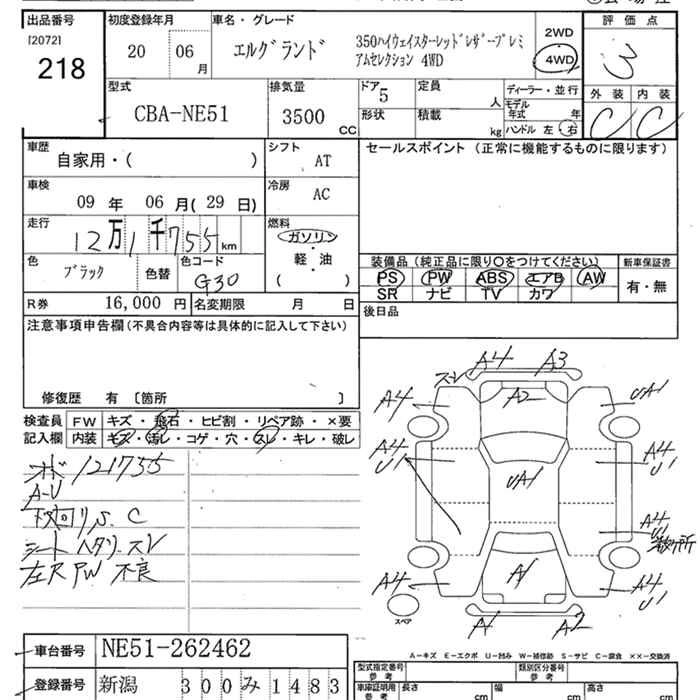 出品番号 初度登録年月 車名・グレード 評価点
[2072]
218
20 06 月
エルグランド
350ハイウェイスターレッドレザープレミ
アムセレクション 4WD
2WD
4WD
3
外装 内装
C C
型式 排気量 ドア 定員 ディーラー・並行
CBA-NE51 3500 CC 5 人
形状 積載 kg
モデル年式 年
ハンドル 左 右
車歴 シフト セールスポイント (正常に機能するものに限ります)
自家用・( ) AT
車検 冷房
09 年 06 月(29 日) AC
走行 燃料
12万1千755 km ガソリン
軽・油
( )
色 ブラック 色替 色コード G30
装備品 (純正品に限り○をつけてください) 新車保証書
PS PW ABS エアB AW 有・無
SR ナビ TV カワ
R券 16,000 円 名変期限 月 日
後日品
注意事項申告欄(不具合内容等は具体的に記入して下さい)
修復歴 有 〔箇所 〕
検査員 FW キズ・飛石・ヒビ割・リペア跡・×要
記入欄 内装 キズ・汚レ・コゲ・穴・スレ・キレ・破レ
A4 A3
スレ
A4 A2 UA1
A4 U1 UA1 A4 U1
A4 U1
A4 A1 A4 U1
スペア
A1 A2
121755
A-U
下回リ S.C
シート ヘタリ スレ
左R PW 不良
A-キズ E-エクボ U-凹み W-補修跡 S-サビ C-腐食 ××-交換済
車台番号 NE51-262462
型式指定番号 参考 類別区分番号 参考
登録番号 新潟 300 み 1483
車庫証明用 参考 長さ cm 幅 cm 高さ cm